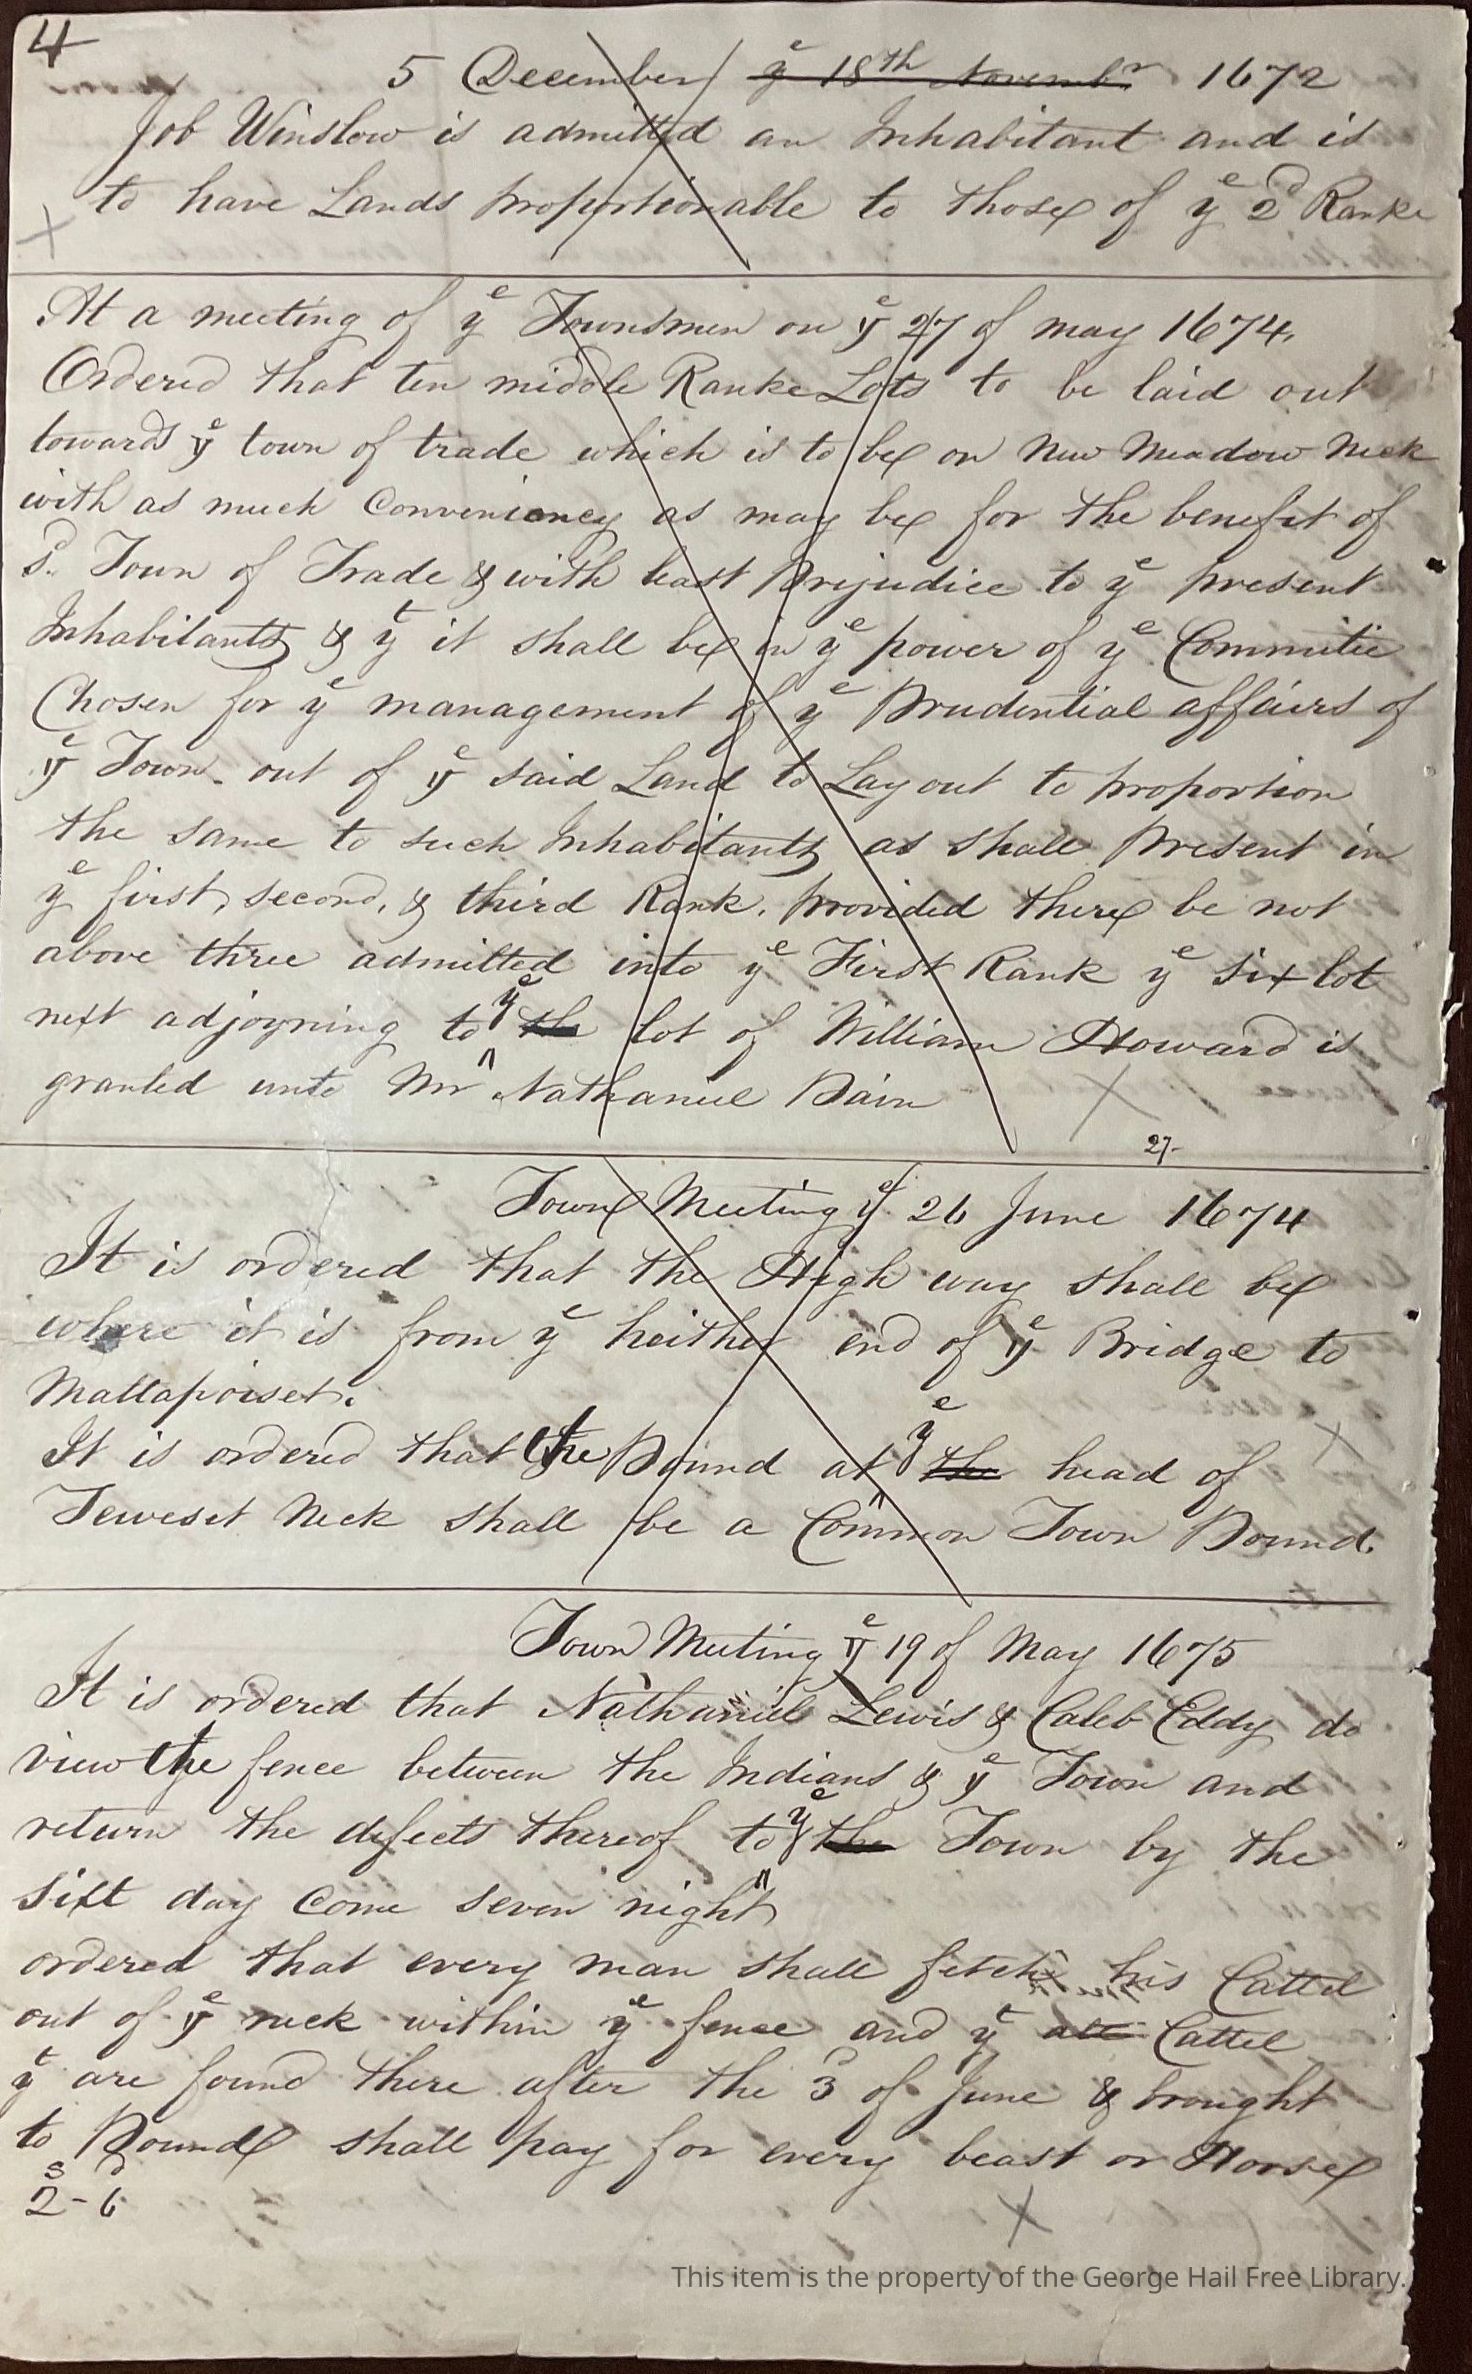 4
5 December / ye 18th Novembr 1672
Job Winslow is admitted an Inhabitant and is
to have Lands proportionable to those of ye 2d Ranke
At a meeting of ye Townsmen on ye 27 of may 1674.
Ordered that ten middle Ranke Lots to be laid out
towards ye town of trade which is to be on New Meadow Neck
with as much Conveniency as may be for the benefit of
sd. Town of Trade & with least Prejudice to ye present
Inhabitants & yt it shall be in ye power of ye Committie
Chosen for ye management of ye Prudential affairs of
ye Town out of ye said Land to Lay out to proportion
the same to such Inhabitants as shall Present in
ye first, second, & third Rank, provided there be not
above three admitted into ye First Rank ye six lot
next adjoyning to ye the lot of William Howard is
granted unto Mr Nathaniel Pain
27
Town Meeting ye 26 June 1674
It is ordered that the High way shall be
where it is from ye heither end of ye Bridge to
Mattapoiset.
It is ordered that the Pound at ye the head of
Teweset Neck shall be a Common Town Pound.
Town Meeting ye 19 of May 1675
It is ordered that Nathaniel Lewis & Caleb Eddy do
view the fence between the Indians & ye Town and
return the defects thereof to ye the Town by the
sixt day come seven night
ordered that every man shall fetch his Cattel
out of ye neck within ye fence and yt all Cattel
yt are found there after the 3d of June & brought
to Pound shall pay for every beast or Horse
2s - 6d
This item is the property of the George Hail Free Library.